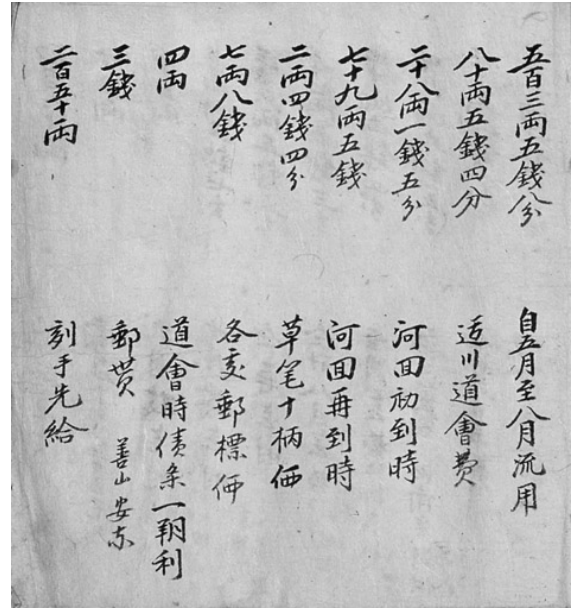 五百三両五錢八分 自五月至八月流用
八十両五錢四分 迃川道會費
二十八両一錢五分 河回初到時
七十九両五錢 河回再到時
二両四錢四分 草笔十柄価
七両八錢 各處郵標価
四両 道會時債条一朔利
三錢 郵費 善山安东
二百五十両 刻手先給